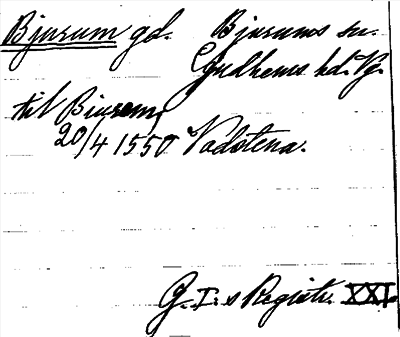 Bjurum gd. Bjurums sn.
Gudhems hd. Vg.
till Biurem,
20/4 1550 Vadstena.
G. I:s Registr. XXI